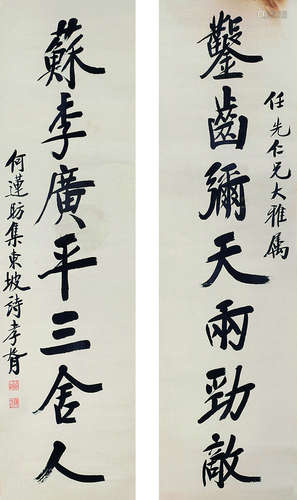 任先仁兄大雅属
鑿齒彌天兩勁敵
蘇李廣平三舍人
何蓮昉集東坡詩孝胥